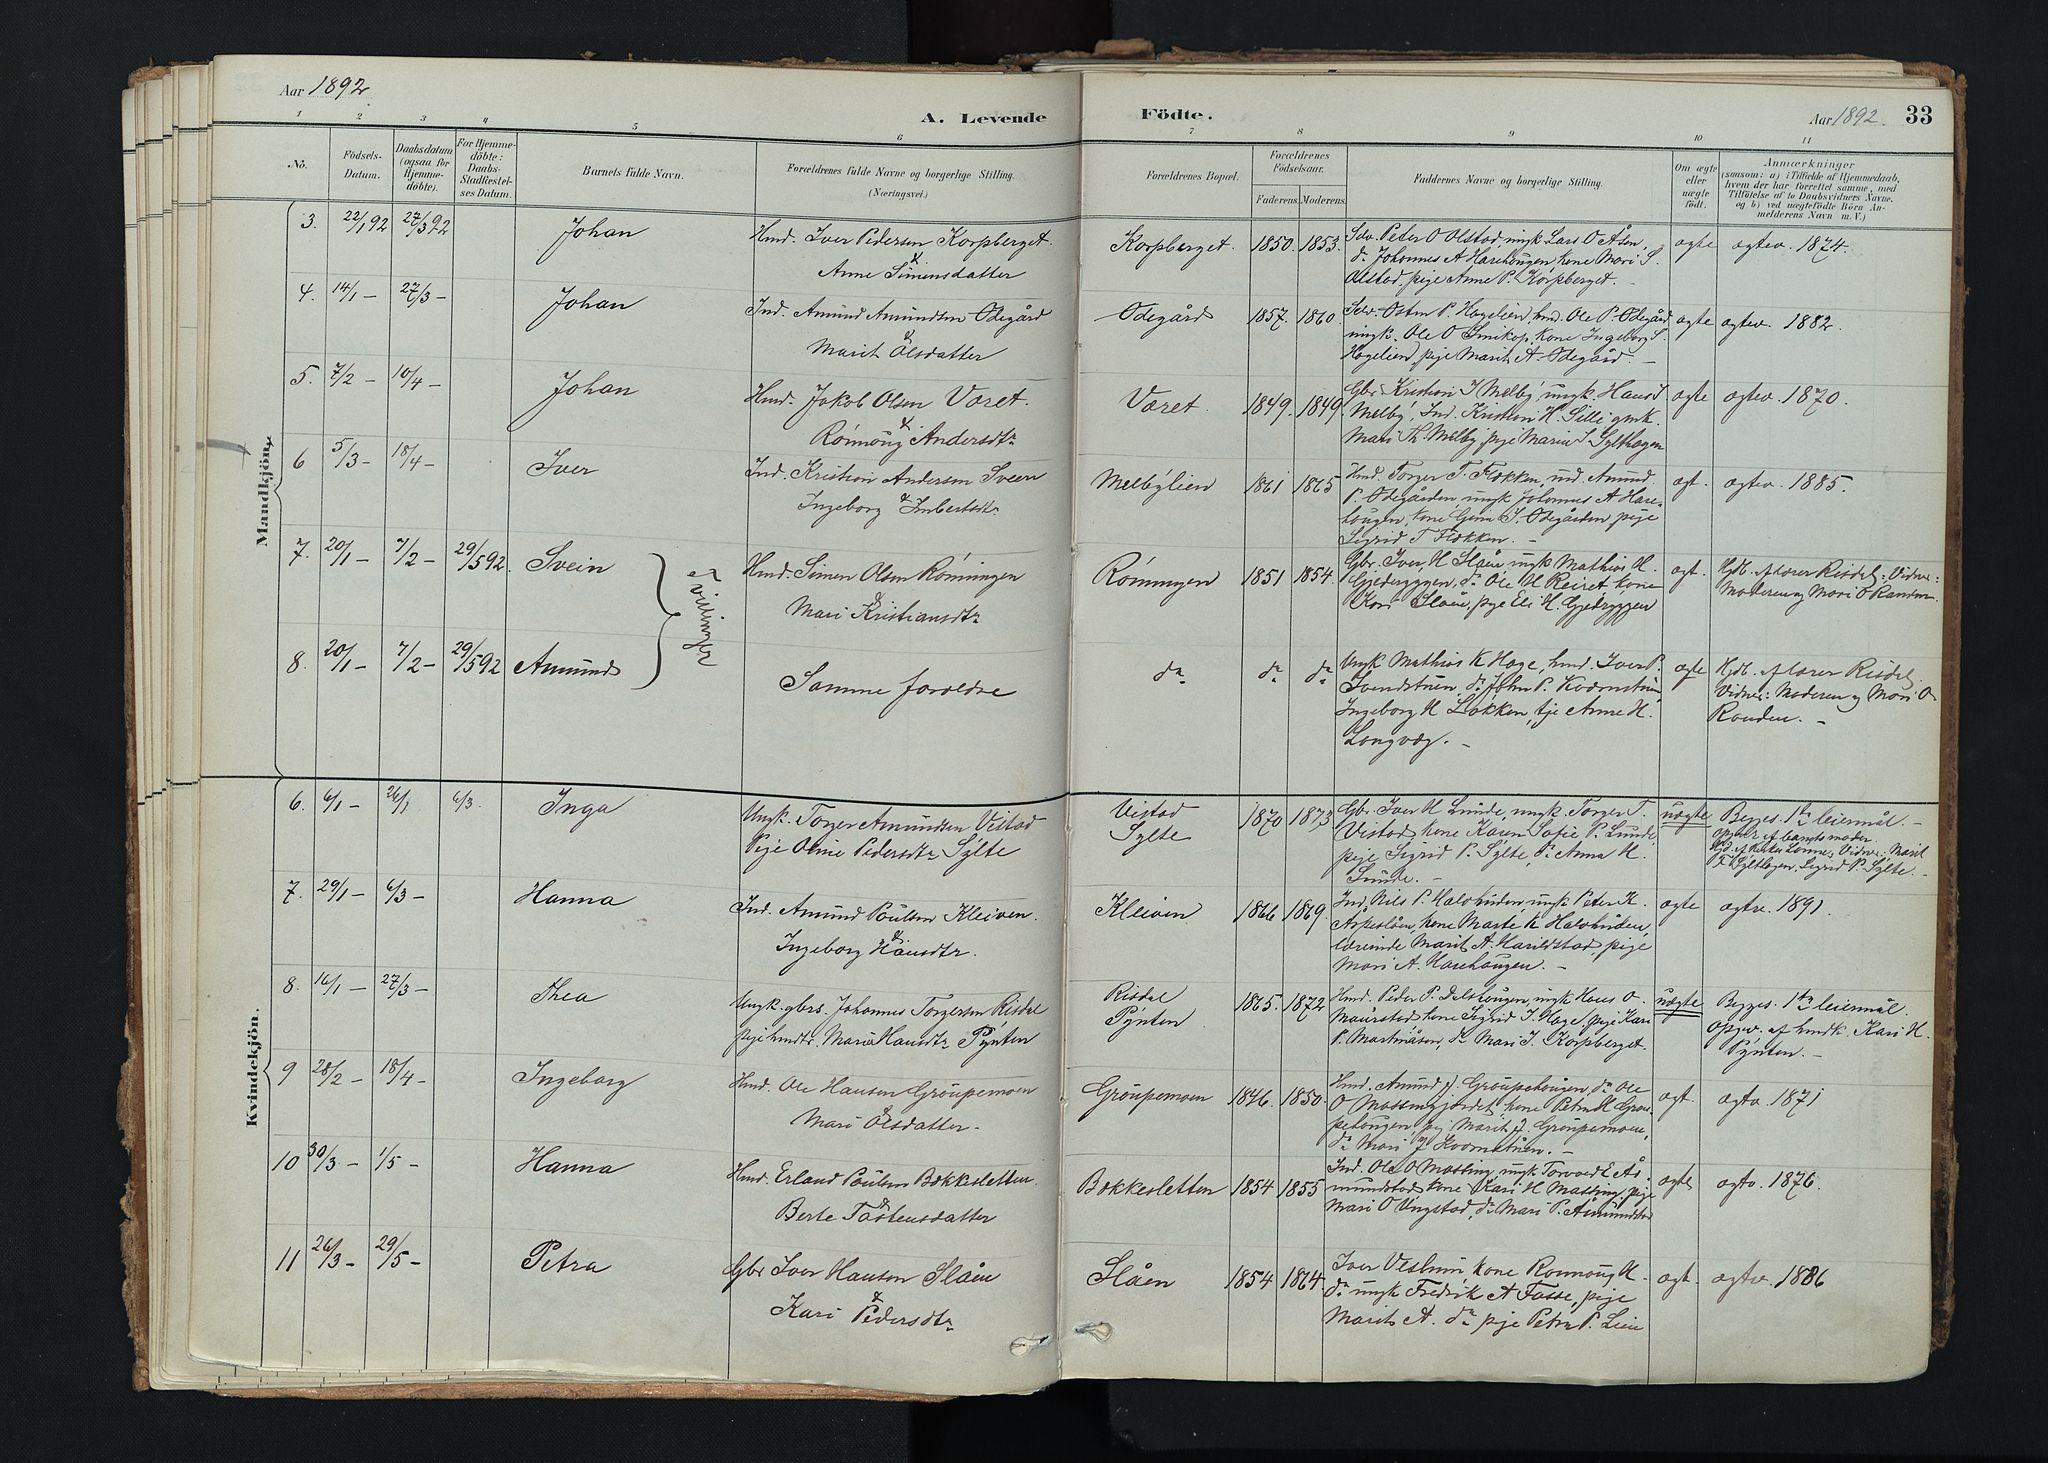 Aar 1892
A. Levende
Födte.
Aar 1892.
33
1
2
3
4
5
6
7
8
9
10
11
No.
Födsels-
Datum.
Daabsdatum
(ogsaa for
Hjemme-
döbte).
For Hjemme-
döbte:
Daabs-
Stadfæstel-
ses Datum.
Barnets fulde Navn.
Forældrenes fulde Navne og borgerlige Stilling.
(Næringsvei.)
Forældrenes Bopæl.
Forældrenes
Födselsaar.
Faderens.
Moderens.
Faddernes Navne og borgerlige Stilling.
Om ægte
eller
uægte
födt.
Anmærkninger
(saasom: a) i Tilfælde af Hjemmedaab,
hvem der har forrettet samme, med
Tilföielse af to Daabsvidners Navne.
og b) ved uægtefödte Börn An-
melderens Navn m. V.)
Mandkjön.
3. 22/1 92 27/3 92 Johan
Hmd. Iver Pedersen Korpberget.
&
Anne Simensdatter
Korpberget. 1850. 1853.
Sdv. Peter O Olstad, ungk Lars O Åsen,
do Johannes A Harehaugen kone Mari S.
Olstad, pige Anne P. Korpberget. –
ægte
ægtev. 1874.
4. 14/1 – 27/3 – Johan
Ind. Amund Amundsen Ødegård
&
Marit Olsdatter
Ødegård 1857. 1860.
Sdv. Osten P. Hagelien, hmd. Ole P. Ødegård,
ungk. Ole O kone Ingeborg S.
Hagelien, pige Marit A. Ødegård. –
ægte
ægtev. 1882.
5. 7/2 – 10/4 – Johan
Hmd. Jakob Olsen Været.
&
Rönnoug Andersdtr
Været. 1849. 1849
Gbr. Kristian I Melby ungk. Hans I
Melby, Ind. Kristian H. Sille gmk.
Mari Th. Melby, pige Marie I Sylthagen
ægte
ægtev. 1870.
6 5/3 – 18/4 – Iver
Ind. Kristian Andersen Sveen
&
Ingeborg Imbertsdtr
Melbylien 1861 1865
Hmd. Torger T. Flækken, ind. Amund
P. Ødegården ungk Johannes A Hare-
haugen, kone Gina I. Ødegården, pige
Sigrid T Flækken. –
ægt.
ægtev. 1885.
7. 20/1 – 7/2 – 29/5 92. Svein
tvillinger
Hmd. Simen Olsen Rönningen
&
Mari Kristiansdtr
Rönningen 1851 1854.
Gbr. Iver H Slåen, ungk Mathias H.
Gjederyggen, do Ole O Reiret kone
Kari Slåen, pige Eli H. Gjederyggen
ægt.
Hjdb. af lærer Risdal. Vidner:
Moderen og Mari O Randen.
8. 20/1 – 7/2 – 29/5 92 Amund
Samme foreldre
do do do
Ungk Mathias K Hage, hmd. Iver P.
Svendstuen, do John P. Kvernstuen
Ingeborg H Løkken, tje Anne H.
Langvæg. –
ægte
Hjdb. af lærer Risdal.
Vidner: Moderen og Mari O
Randen. –
Kvindekjön.
6. 6/1 – 24/1 6/3. Inga
Ungk. Torger Amundsen Vistad
Pige Anne Pedersdtr Sylte
Vistad
Sylte
1870 1873
Gbr. Iver H Lunde, ungk Torger T.
Vistad, kone Karen Sofie P. Lunde,
pige Sigrid P. Sylte, P. Anna H.
Lunde. –
uægte
Begges 1ste leiermål. –
Opgiv. af barnets moder
Vidner: Marit
T Sylthagen, Sigrid P. Sylte. –
7. 29/1 – 6/3 – Hanna
Ind. Amund Poulsen Kleiven.
&
Ingeborg Hansdtr.
Kleiven 1866 1869.
Ind. Nils P. Halvhuden ungk Peter K.
Aspeslåen, kone Marte K Halvhuden,
lærerinde Marit A. Harildstad, pige
Mari A. Harehaugen. –
ægte
ægtv. 1891.
8. 16/1 – 27/3 – Thea
Ungk. gbrs. Johannes Torgersen Risdal
pige hmdtr. Mari Hansdtr Pynten
Risdal
Pynten
1865. 1872
Hmd. Peder P. Dalshaugen, ungk Hans O.
Maurstad kone Sigrid I. Hage, pige Kari
P. Martinåsen, do Mari I. Korpberget.
uægte
Begges. 1ste leiermål.
Opgiv. af hmdk. Kari H.
Pynten. –
9 28/2 – 18/4 – Ingeborg
Hmd. Ole Hansen Groupemoen
&
Mari Olsdatter –
Groupemoen 1846. 1850.
Hmd. Amund J. Groupehaugen, do Ole
O Massingjordet, kone Petra H Grou-
pehaugen pig Marit J. Groupemoen,
do Mari J. –
ægt.
ægtv. 1871
10 30/3 – 1/5 – Hanna
Hmd. Erland Poulsen Bækkesletten.
&
Berte Tostensdatter
Bækkesletten 1854 1855
Ind. Ole O Massing, ungk Torvald E Ås-
mundstad kone Kari H Massing, pige
Mari O Ungstad, do Mari P. Åsmundstad
ægte
ægtv. 1876.
11 26/3 – 29/5 – Petra
Gbr Iver Hansen Slåen
&
Kari Pedersdtr
Slåen 1854 1864.
Iver kone Rönnoug H.
do ungk Fredrik A Fosse, pige
Marit A. do pige Petra P. Lien
ægt.
ægtev. 1886